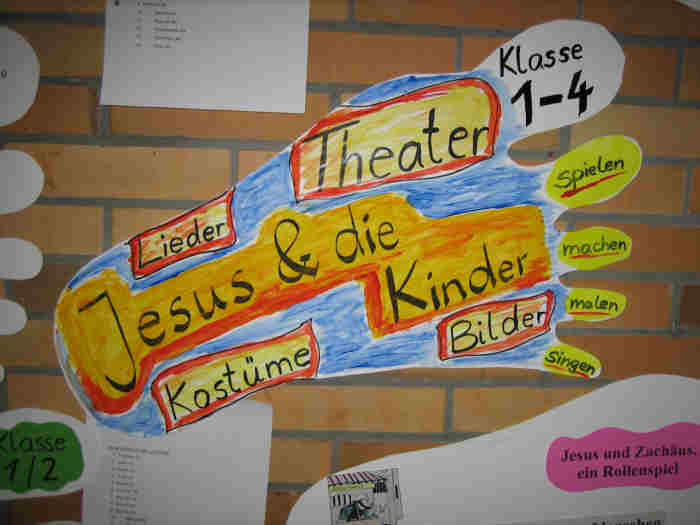 Klasse
1-4
Theater
Lieder
Jesus & die
Kinder
Kostüme
Bilder
spielen
machen
malen
singen
Klasse
1/2
Jesus und Zachäus,
ein Rollenspiel